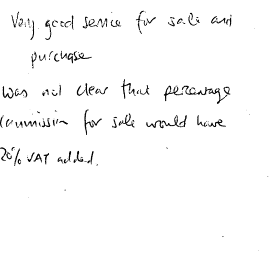 Very good service for sale and
purchase
Was not clear that percentage
commission for sale would have
20% VAT added.